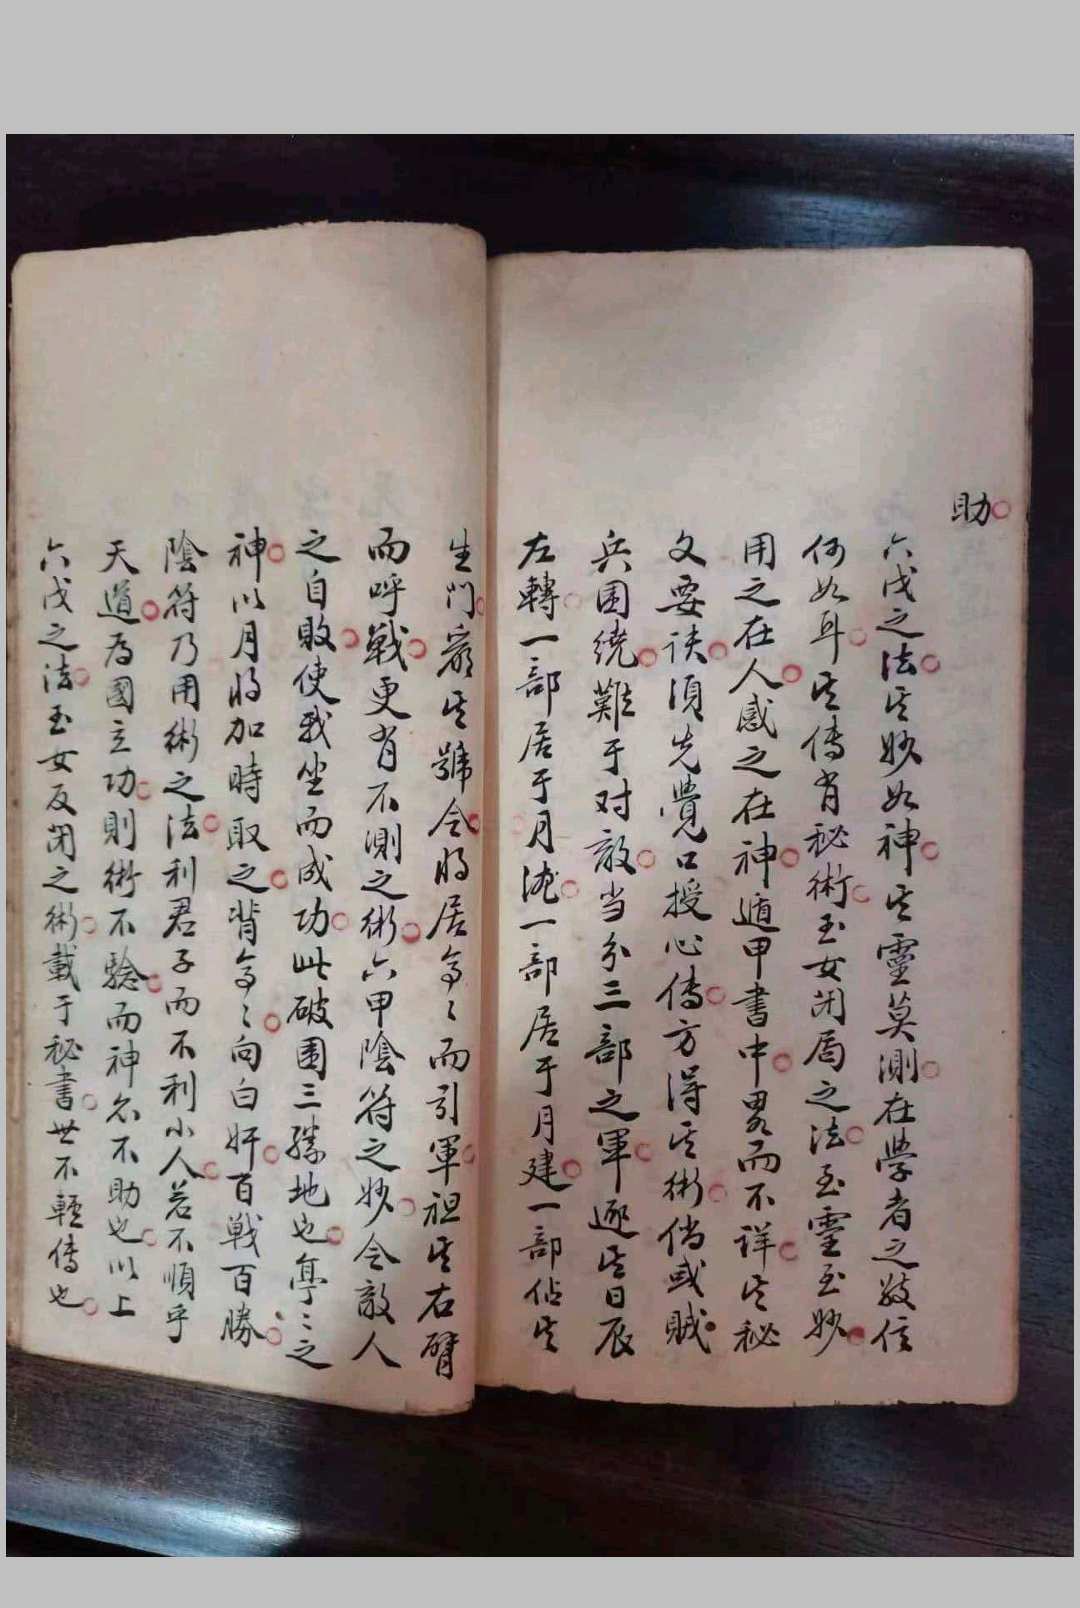 助
六戊之法其妙如神其靈莫測在學者之放信
何如耳其傳有秘術玉女閉局之法至靈至妙
用之在人感之在神遁甲書中畧而不詳其秘
文要訣須先覺口授心傳方得其術倘或賊
兵围繞難于对敵当分三部之軍逐其日辰
左轉一部居于月德一部居于月建一部佔其
生門嚴其號令將居亭亭而引軍袒其右臂
而呼戰更有不測之術六甲陰符之妙令敵人
之自敗使我坐而成功此破围三勝地也亭亭之
神以月將加時取之背亭亭向白奸百戰百勝
陰符乃用術之法利君子而不利小人若不順乎
天道為國立功則術不驗而神亦不助也以上
六戊之法玉女反闭之術載于秘書世不輕傳也